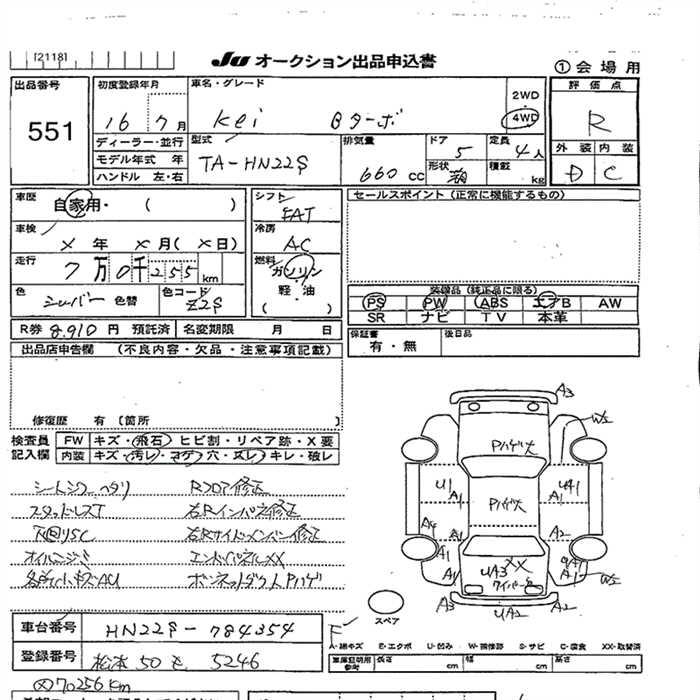 [2118] Ju オークション出品申込書 ①会場用
出品番号 551
初度登録年月 16 7月
車名・グレード Kei Bターボ
2WD 4WD
評価点 R
ディーラー・並行
モデル年式 年
ハンドル 左・右
型式 TA-HN22S
排気量 660 cc
ドア 5
形状
定員 4人
積載 kg
外装 内装
D C
車歴 自家用・( )
シフト FAT
セールスポイント (正常に機能するもの)
車検 × 年 × 月(× 日)
冷房 AC
走行 7万0千255km
燃料 ガソリン
軽・油
( )
色 シルバー 色替
色コード Z2S
装備品 (純正品に限る)
PS PW ABS エアB AW
SR ナビ TV 本革
R券 8,910円 預託済 名変期限 月 日
保証書 有・無
後日品
出品店申告欄 (不良内容・欠品・注意事項記載)
修復歴 有 (箇所
検査員記入欄
FW キズ・飛石・ヒビ割・リペア跡・X要
内装 キズ・汚レ・コゲ・穴・スレ・キレ・破レ
シートシワ ヘタリ Rフロア修正
スタッドレスT 右Rインパネ修正
下回りSC 右Rサイドメンバー修正
オイルニジミ エンドパネルXX
各所小キズAU ボンネットダクトPハゲ
A3
W2
Pハゲ大
U1 A1
Pハゲ大
UA1 A1
A4 A1 A2
A1 A1
XX
UA3
ワイパーキズ
A1 W2
A3 UA2 A2
スペア
車台番号 HN22S-784354
登録番号 松本 50 5246
A-線キズ E-エクボ U-凹み W-補修跡 S-サビ C-腐食 XX-取替済
車庫証明用参考 長さ cm 幅 cm 高さ cm
70256km